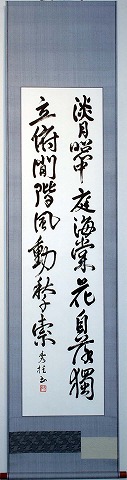 淡月照中庭海棠花自落獨
立俯閒階風動秋千索
秀桂書